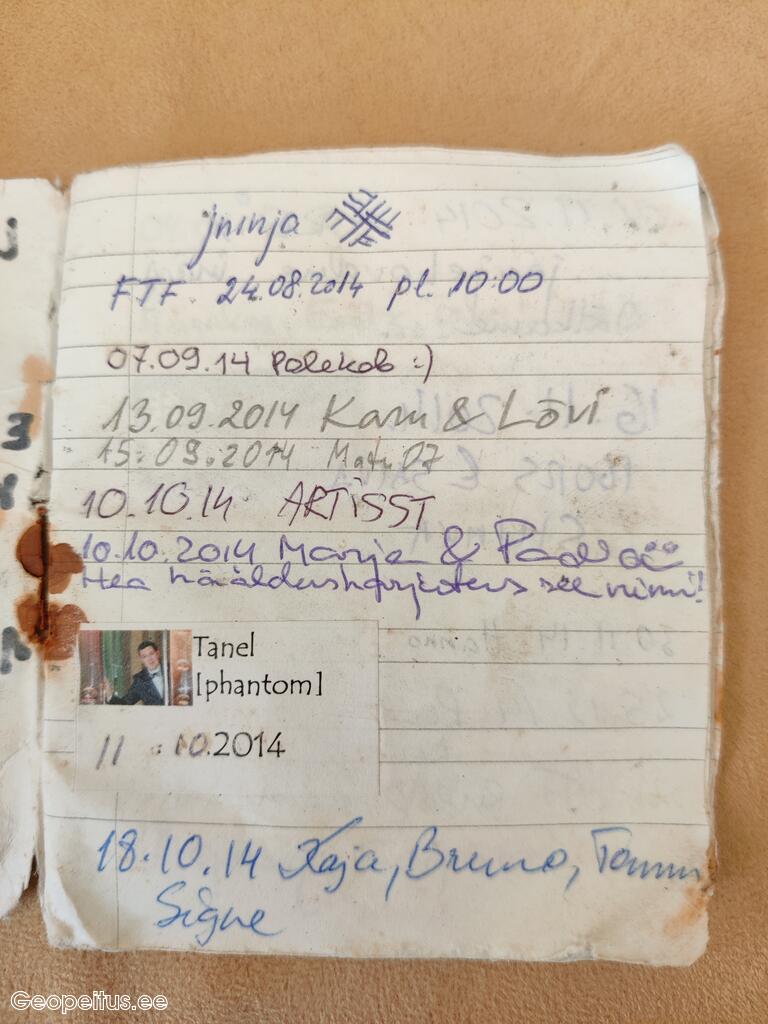 jninja
FTF 24.08.2014 pl. 10:00
07.09.14 Polekob :)
13.09.2014 Karu & Lõvi
15.09.2014
10.10.14 ARTiSST
10.10.2014 Marje &
Hea hääldusharjutus see nimi!
Tanel
[phantom]
11.10.2014
18.10.14 Kaja, Bruno, Tommi
Signe
Geopeitus.ee